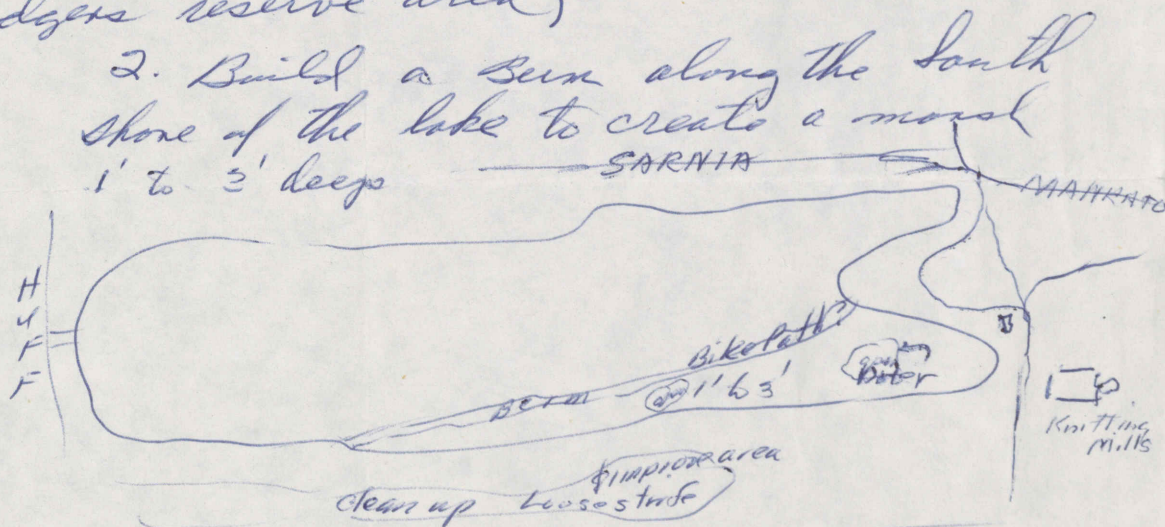 dgers reserve area)
2. Build a Berm along the South
shore of the lake to create a marsh
1' to 3' deep
SARNIA
MANKATO
H
U
F
F
Bike Path?
Berm
1' to 3'
open
Water
Knitting
Mills
& improve area
clean up Loosestrife